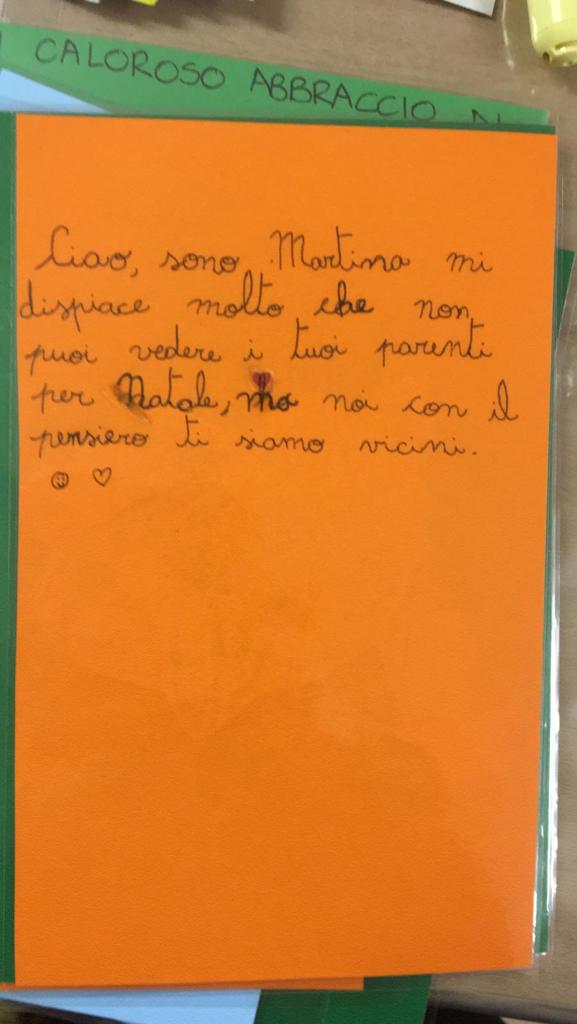 CALOROSO ABBRACCIO
Ciao, sono Martina mi
dispiace molto che non
puoi vedere i tuoi parenti
per Natale, ma noi con il
pensiero ti siamo vicini.